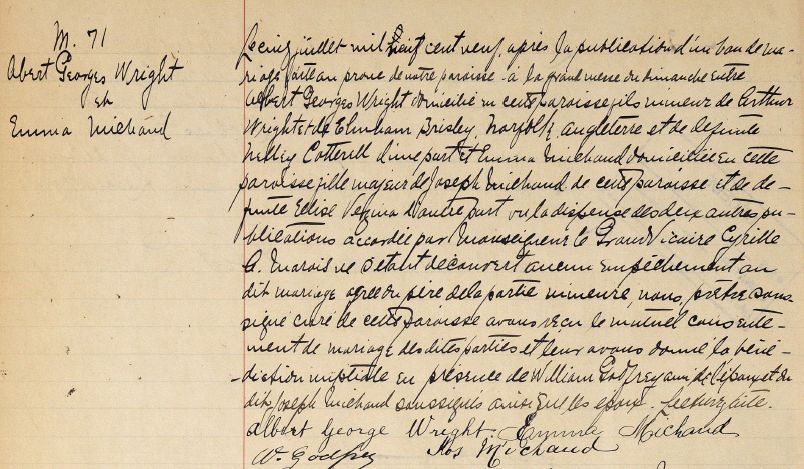 M. 71
Abert Georges Wright
et
Emma Michaud
Le cinq juillet mil huit cent neuf, après la publication d'un ban de ma-
riage faite au prone de notre paroisse à la grand messe du dimanche entre
Albert Georges Wright domicilié en cette paroisse fils mineur de Arthur
Wright et de Elmham Brisley, Norfolk, Angleterre et de défunte
Nelley Cotterill d'une part et Emma Michaud domiciliée en cette
paroisse fille majeur de Joseph Michaud de cette paroisse et de dé-
funte Elise Vezina d'autre part vu la dispense des deux autres pu-
blications accordée par Monseigneur le Grand Vicaire Cyrille
A. Marois ne s'étant découvert aucun empêchement au
dit mariage agrée du père de la partie mineure, nous, prêtre sous-
signé curé de cette paroisse avons reçu le mutuel consente-
ment de mariage des dites parties et leur avons donné la béné-
-diction nuptiale en présence de William Godfrey ami de l'époux et du
dit Joseph Michaud soussignés ainsi que les époux. Lecture faite.
Albert George Wright. Emma Michaud
W. Godfrey Jos Michaud